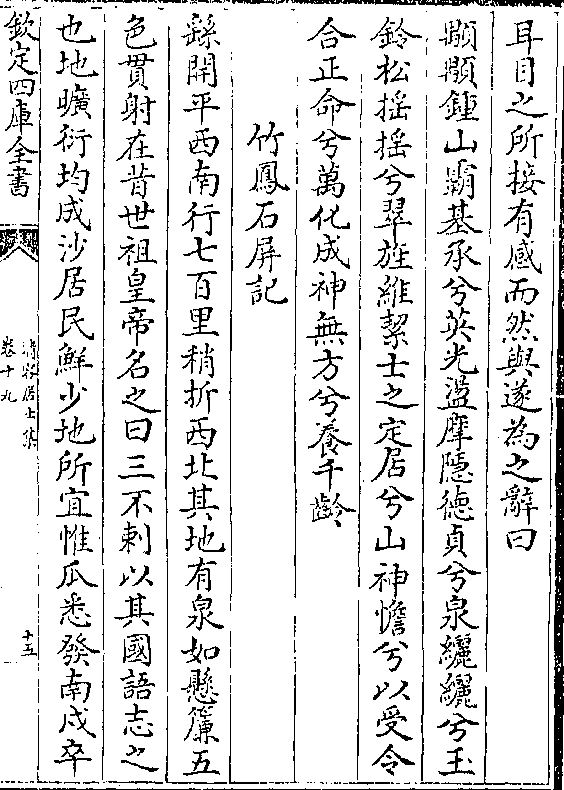 耳目之所接有感而然與遂為之辭曰
顥顥鍾山霸基承兮英光溢摩隱德貞兮泉纚纚兮玉
鈴松揺揺兮翠旌維絜士之定居兮山神憺兮以受令
合正命兮萬化成神無方兮養千齡
竹鳳石屏記
繇開平西南行七百里稍折西北其地有泉如懸簾五
色貫射在昔世祖皇帝名之曰三不剌以其國語志之
也地曠衍均成沙居民鮮少地所宜惟瓜悉發南戍卒
欽定四庫全書
清容居士集
卷十九
十五